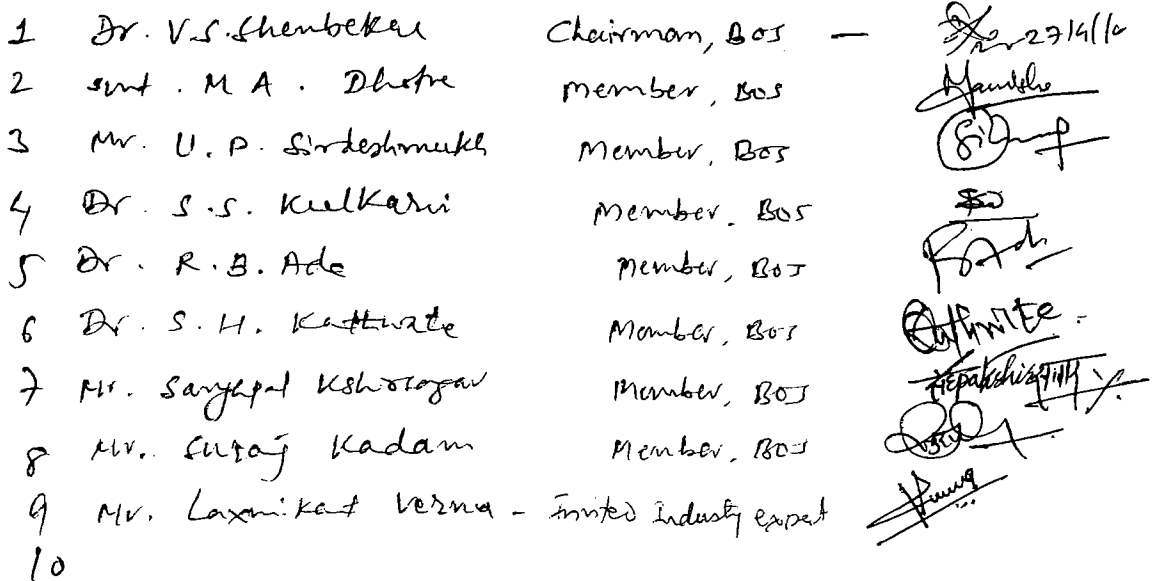 1 Dr. V.S. Shembekar Chairman, BOS — 27/4/10
2 smt. M A. Dhotre member, BOS Manisha
3 Mr. U. P. Sirdeshmukh Member, BOS
4 Dr. S.S. Kulkarni Member. BOS
5 Dr. R. B. Ade Member, BOS
6 Dr. S. H. Kathwate Member, BOS
7 Mr. Kshirsagar Member, BOS
8 Mr. Suraj Kadam Member, BOS
9 Mr. Laxmikat Verma - Invited Industy expert
10